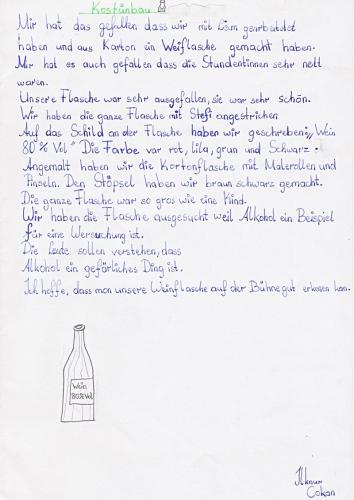 Kostünbau
Mir hat das gefallen dass wir mit Leim gearbeitet
haben und aus Karton ein Weiflasche gemacht haben.
Mir hat es auch gefallen dass die Stundentinnen sehr nett
waren.
Unsere Flasche war sehr ausgefallen, sie war sehr schön.
Wir haben die ganze Flasche mit Stefi angestrichen
Auf das Schild an der Flasche haben wir geschreiben: „Wein
80 % Vol" Die Farbe var rot, lila, grun und Schwarz.
Angemalt haben wir die Kortonflasche mit Malerollen und
Pinseln. Den Stöpsel haben wir braun schwarz gemacht.
Die ganze Flasche war so gros wie eine Kiind.
Wir haben die Flasche ausgesucht weil Alkohol ein Beispiel
für eine Wersuchung ist.
Die Leute sollen verstehen, dass
Alkohol ein gefärliches Ding ist.
Ich hoffe, dass mon unsere Weinflasche auf der Bühne gut erkenen kan.
Wein
80% Vol
Cokan